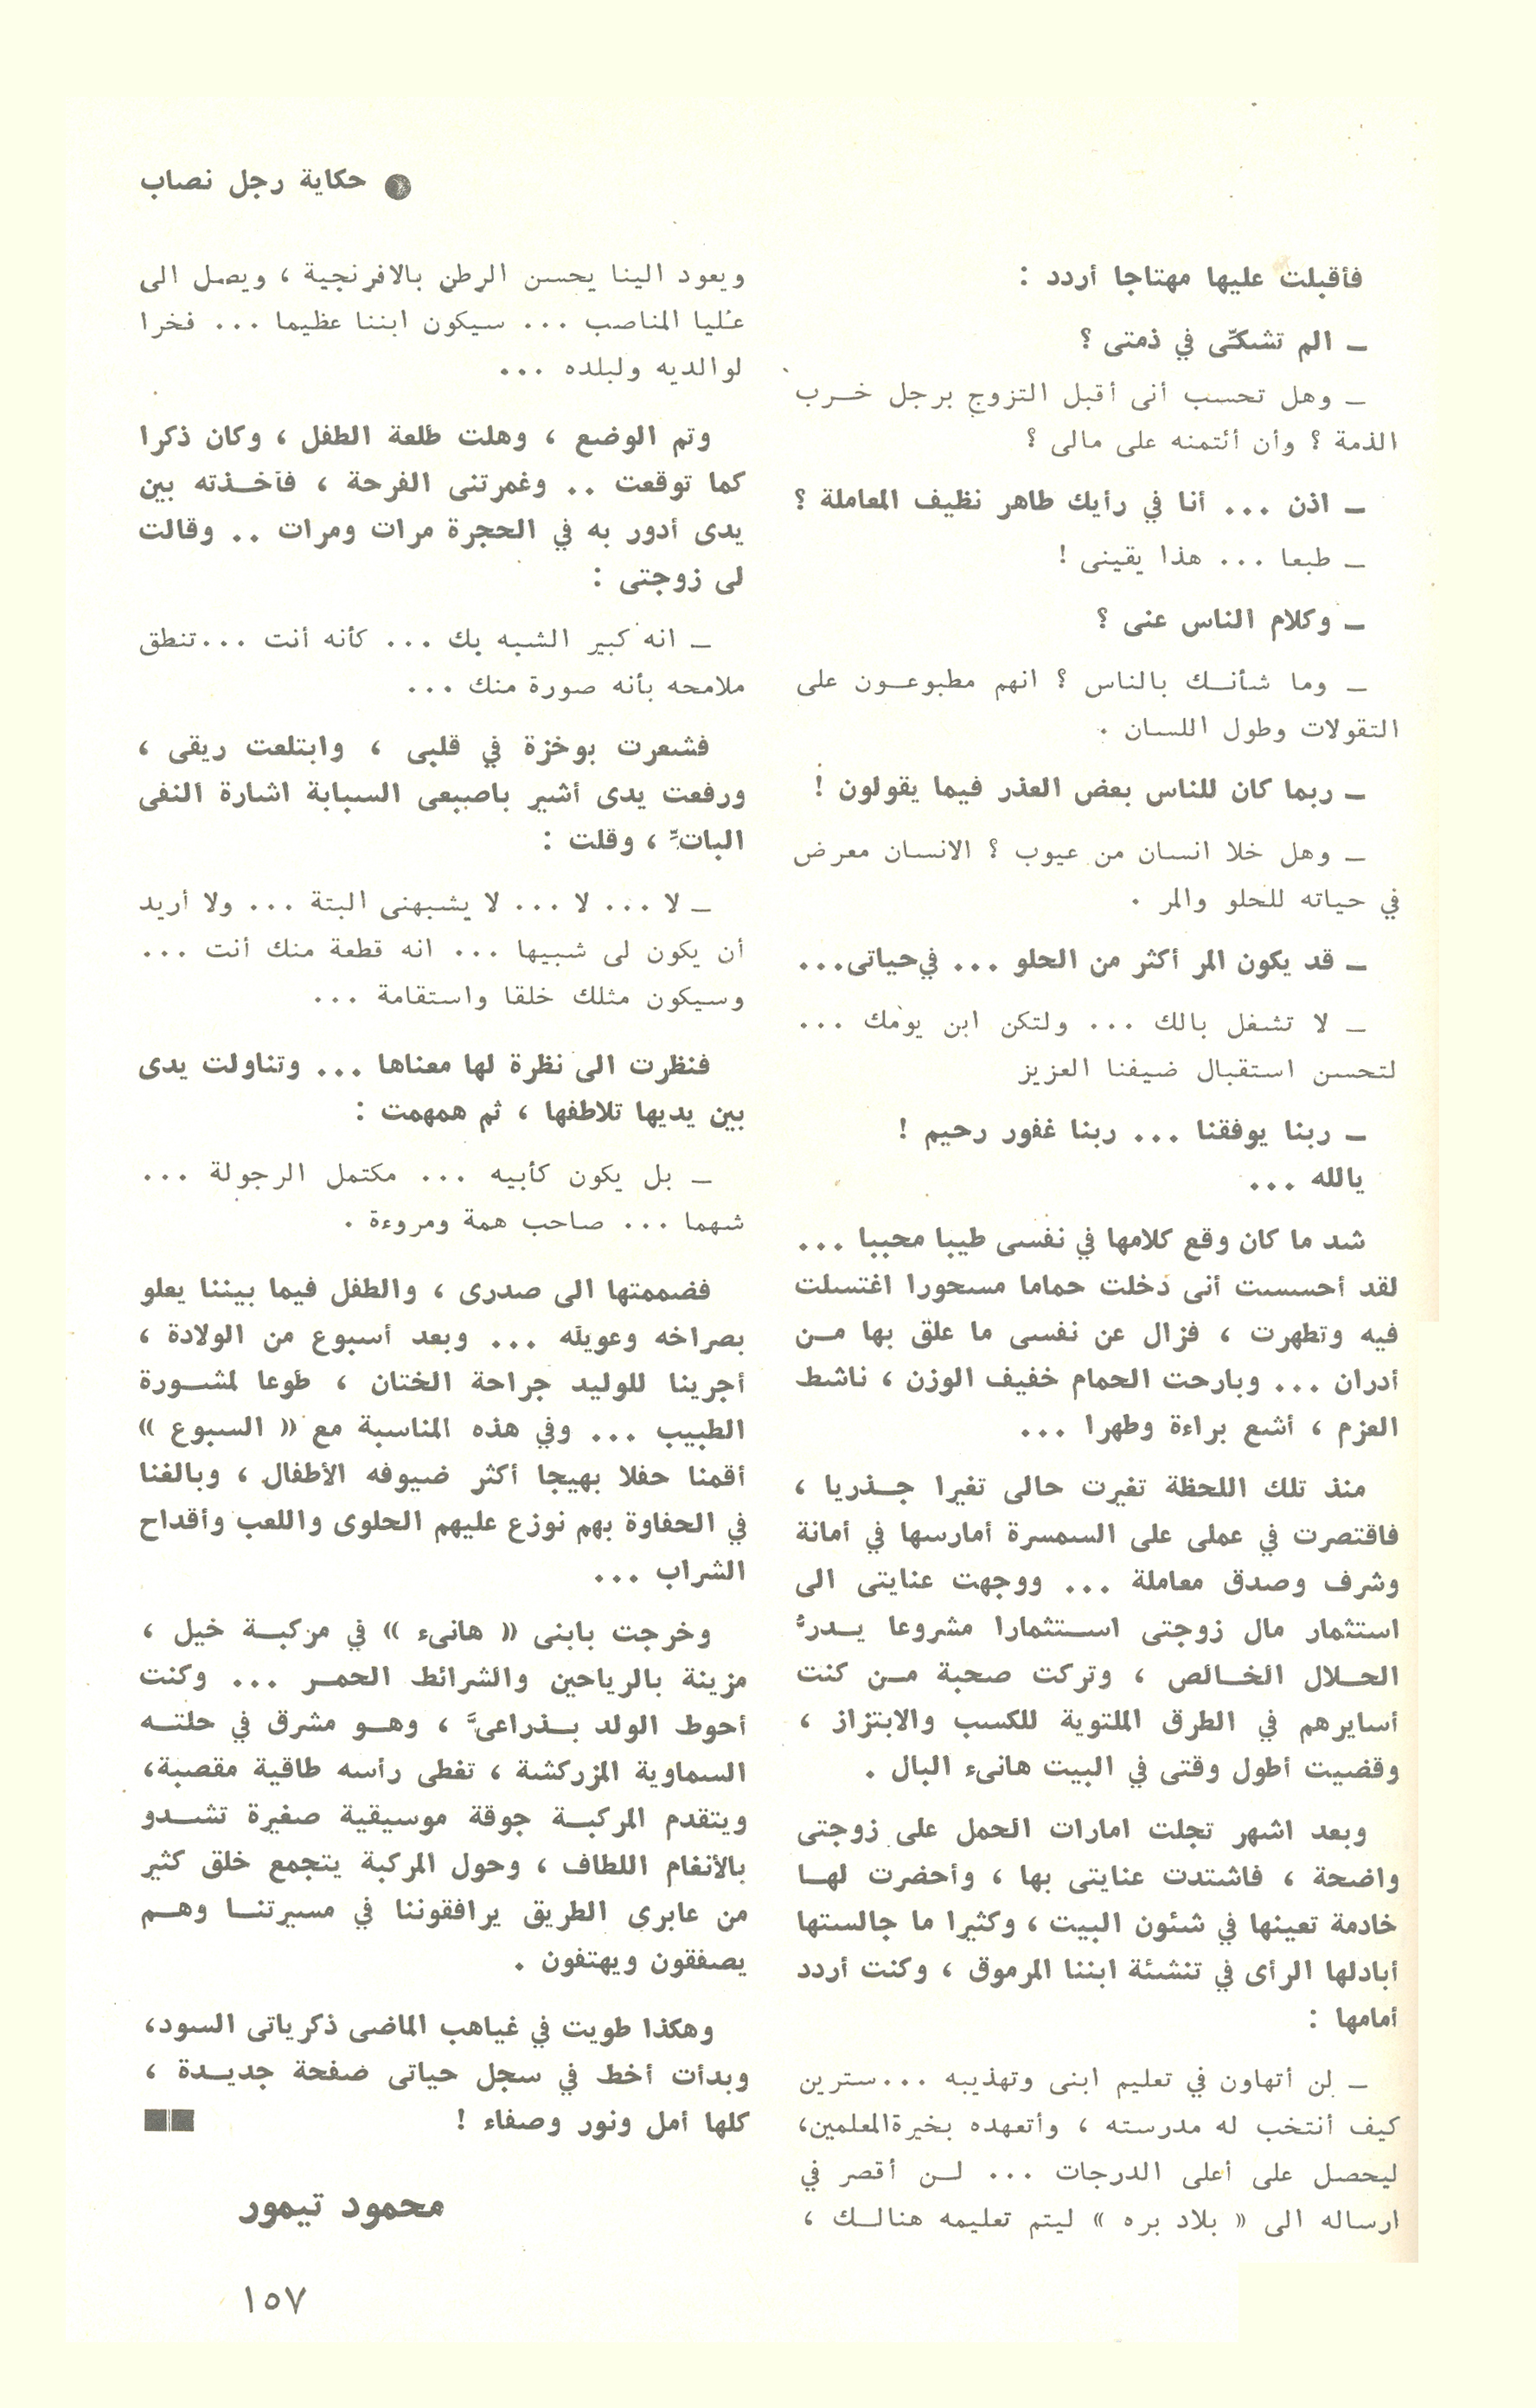 ● حكاية رجل نصاب
فأقبلت عليها مهتاجا أردد :
ـ الم تشكّى في ذمتى ؟
ـ وهل تحسب أنى أقبل التزوج برجل خــرب
الذمة ؟ وأن أئتمنه على مالى ؟
ـ اذن ... أنا في رأيك طاهر نظيف المعاملة ؟
ـ طبعا ... هذا يقينى !
ـ وكلام الناس عنى ؟
ـ وما شأنــك بالناس ؟ انهم مطبوعــون على
التقولات وطول اللسان .
ـ ربما كان للناس بعض العذر فيما يقولون !
ـ وهل خلا انسان من عيوب ؟ الانسان معرض
في حياته للحلو والمر .
ـ قد يكون المر أكثر من الحلو ... في حياتى...
ـ لا تشغل بالك ... ولتكن ابن يومك ...
لتحسن استقبال ضيفنا العزيز
ـ ربنا يوفقنا ... ربنا غفور رحيم !
يالله ...
شد ما كان وقع كلامها في نفسى طيبا محببا ...
لقد أحسست أنى دخلت حماما مسحورا اغتسلت
فيه وتطهرت ، فزال عن نفسى ما علق بها مــن
أدران ... وبارحت الحمام خفيف الوزن ، ناشط
العزم ، أشع براءة وطهرا ...
منذ تلك اللحظة تغيرت حالى تغيرا جــذريا ،
فاقتصرت في عملى على السمسرة أمارسها في أمانة
وشرف وصدق معاملة ... ووجهت عنايتى الى
استثمار مال زوجتى اســتثمارا مشروعا يــدرُّ
الحــلال الخــالص ، وتركت صحبة مــن كنت
أسايرهم في الطرق الملتوية للكسب والابتزاز ،
وقضيت أطول وقتى في البيت هانىء البال .
وبعد اشهر تجلت امارات الحمل على زوجتى
واضحة ، فاشتدت عنايتى بها ، وأحضرت لهــا
خادمة تعينها في شئون البيت ، وكثيرا ما جالستها
أبادلها الرأى في تنشئة ابننا المرموق ، وكنت أردد
أمامها :
ـ لن أتهاون في تعليم ابنى وتهذيبه ...سترين
كيف أنتخب له مدرسته ، وأتعهده بخيرة المعلمين،
ليحصل على أعلى الدرجات ... لــن أقصر في
ارساله الى « بلاد بره » ليتم تعليمه هنالــك ،
ويعود الينا يحسن الرطن بالافرنجية ، ويصل الى
عُليا المناصب ... سيكون ابننا عظيما ... فخرا
لوالديه ولبلده ...
وتم الوضع ، وهلت طلعة الطفل ، وكان ذكرا
كما توقعت .. وغمرتنى الفرحة ، فأخــذته بين
يدى أدور به في الحجرة مرات ومرات .. وقالت
لى زوجتى :
ـ انه كبير الشبه بك ... كأنه أنت ...تنطق
ملامحه بأنه صورة منك ...
فشعرت بوخزة في قلبى ، وابتلعت ريقى ،
ورفعت يدى أشير باصبعى السبابة اشارة النفى
الباتِّ ، وقلت :
ـ لا ... لا ... لا يشبهنى البتة ... ولا أريد
أن يكون لى شبيها ... انه قطعة منك أنت ...
وسيكون مثلك خلقا واستقامة ...
فنظرت الى نظرة لها معناها ... وتناولت يدى
بين يديها تلاطفها ، ثم همهمت :
ـ بل يكون كأبيه ... مكتمل الرجولة ...
شهما ... صاحب همة ومروءة .
فضممتها الى صدرى ، والطفل فيما بيننا يعلو
بصراخه وعويله ... وبعد أسبوع من الولادة ،
أجرينا للوليد جراحة الختان ، طوعا لمشــورة
الطبيب ... وفي هذه المناسبة مع « السبوع »
أقمنا حفلا بهيجا أكثر ضيوفه الأطفال ، وبالغنا
في الحفاوة بهم نوزع عليهم الحلوى واللعب وأقداح
الشراب ...
وخرجت بابنى « هانىء » في مركبــة خيل ،
مزينة بالرياحين والشرائط الحمــر ... وكنت
أحوط الولد بــذراعىَّ ، وهــو مشرق في حلتــه
السماوية المزركشة ، تغطى رأسه طاقية مقصبة،
ويتقدم المركبــة جوقة موسيقية صغيرة تشــدو
بالأنغام اللطاف ، وحول المركبة يتجمع خلق كثير
من عابرى الطريق يرافقوننا في مسيرتنــا وهــم
يصفقون ويهتفون .
وهكذا طويت في غياهب الماضى ذكرياتى السود،
وبدأت أخط في سجل حياتى صفحة جديــدة ،
كلها أمل ونور وصفاء !
محمود تيمور
١٥٧